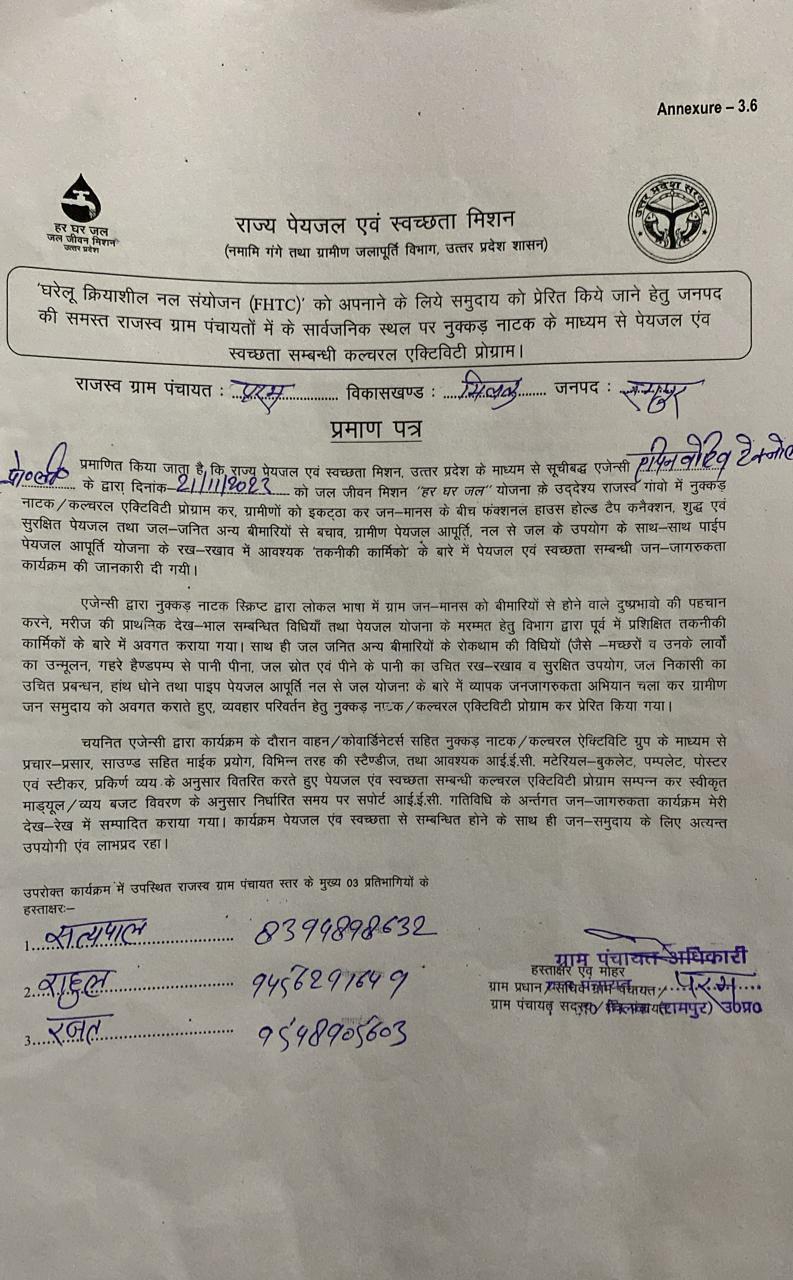 Annexure – 3.6
हर घर जल
जल जीवन मिशन
उत्तर प्रदेश
उत्तर प्रदेश सरकार
राज्य पेयजल एवं स्वच्छता मिशन
(नमामि गंगे तथा ग्रामीण जलापूर्ति विभाग, उत्तर प्रदेश शासन)
'घरेलू क्रियाशील नल संयोजन (FHTC)' को अपनाने के लिये समुदाय को प्रेरित किये जाने हेतु जनपद
की समस्त राजस्व ग्राम पंचायतों में के सार्वजनिक स्थल पर नुक्कड़ नाटक के माध्यम से पेयजल एंव
स्वच्छता सम्बन्धी कल्चरल एक्टिविटी प्रोग्राम।
राजस्व ग्राम पंचायत : परम विकासखण्ड : मिलक जनपद : रामपुर
प्रमाण पत्र
प्रमाणित किया जाता है, कि राज्य पेयजल एवं स्वच्छता मिशन, उत्तर प्रदेश के माध्यम से सूचीबद्ध एजेन्सी
प्रा०ली० के द्वारा दिनांक 21/11/2023 को जल जीवन मिशन "हर घर जल" योजना के उद्देश्य राजस्व गांवो में नुक्कड़
नाटक/कल्चरल एक्टिविटी प्रोग्राम कर, ग्रामीणों को इकट्ठा कर जन–मानस के बीच फंक्शनल हाउस होल्ड टैप कनैक्शन, शुद्ध एवं
सुरक्षित पेयजल तथा जल–जनित अन्य बीमारियों से बचाव, ग्रामीण पेयजल आपूर्ति, नल से जल के उपयोग के साथ–साथ पाईप
पेयजल आपूर्ति योजना के रख–रखाव में आवश्यक 'तकनीकी कार्मिको' के बारे में पेयजल एवं स्वच्छता सम्बन्धी जन–जागरुकता
कार्यक्रम की जानकारी दी गयी।
एजेन्सी द्वारा नुक्कड़ नाटक स्क्रिप्ट द्वारा लोकल भाषा में ग्राम जन–मानस को बीमारियों से होने वाले दुष्प्रभावो की पहचान
करने, मरीज की प्राथमिक देख–भाल सम्बन्धित विधियाँ तथा पेयजल योजना के मरम्मत हेतु विभाग द्वारा पूर्व में प्रशिक्षित तकनीकी
कार्मिकों के बारे में अवगत कराया गया। साथ ही जल जनित अन्य बीमारियों के रोकथाम की विधियों (जैसे –मच्छरों व उनके लार्वो
का उन्मूलन, गहरे हैण्डपम्प से पानी पीना, जल स्रोत एवं पीने के पानी का उचित रख–रखाव व सुरक्षित उपयोग, जल निकासी का
उचित प्रबन्धन, हांथ धोने तथा पाइप पेयजल आपूर्ति नल से जल योजना के बारे में व्यापक जनजागरुकता अभियान चला कर ग्रामीण
जन समुदाय को अवगत कराते हुए, व्यवहार परिवर्तन हेतु नुक्कड़ नाटक/कल्चरल एक्टिविटी प्रोग्राम कर प्रेरित किया गया।
चयनित एजेन्सी द्वारा कार्यक्रम के दौरान वाहन/कोवार्डिनेटर्स सहित नुक्कड़ नाटक/कल्चरल ऐक्टिविटि ग्रुप के माध्यम से
प्रचार–प्रसार, साउण्ड सहित माईक प्रयोग, विभिन्न तरह की स्टैण्डीज, तथा आवश्यक आई.ई.सी. मटेरियल–बुकलेट, पम्पलेट, पोस्टर
एवं स्टीकर, प्रकिर्ण व्यय के अनुसार वितरित करते हुए पेयजल एंव स्वच्छता सम्बन्धी कल्चरल एक्टिविटी प्रोग्राम सम्पन्न कर स्वीकृत
माड्यूल/व्यय बजट विवरण के अनुसार निर्धारित समय पर सपोर्ट आई.ई.सी. गतिविधि के अर्न्तगत जन–जागरुकता कार्यक्रम मेरी
देख–रेख में सम्पादित कराया गया। कार्यक्रम पेयजल एंव स्वच्छता से सम्बन्धित होने के साथ ही जन–समुदाय के लिए अत्यन्त
उपयोगी एंव लाभप्रद रहा।
उपरोक्त कार्यक्रम में उपस्थित राजस्व ग्राम पंचायत स्तर के मुख्य 03 प्रतिभागियों के
हस्ताक्षरः–
1. सत्यपाल 8394898632
2. राहुल 9456291649
3. रजत 9548905603
ग्राम पंचायत अधिकारी
हस्ताक्षर एवं मोहर
ग्राम प्रधान/सचिव ग्राम पंचायत/ परम
ग्राम पंचायत सदस्य (रामपुर) उ०प्र०